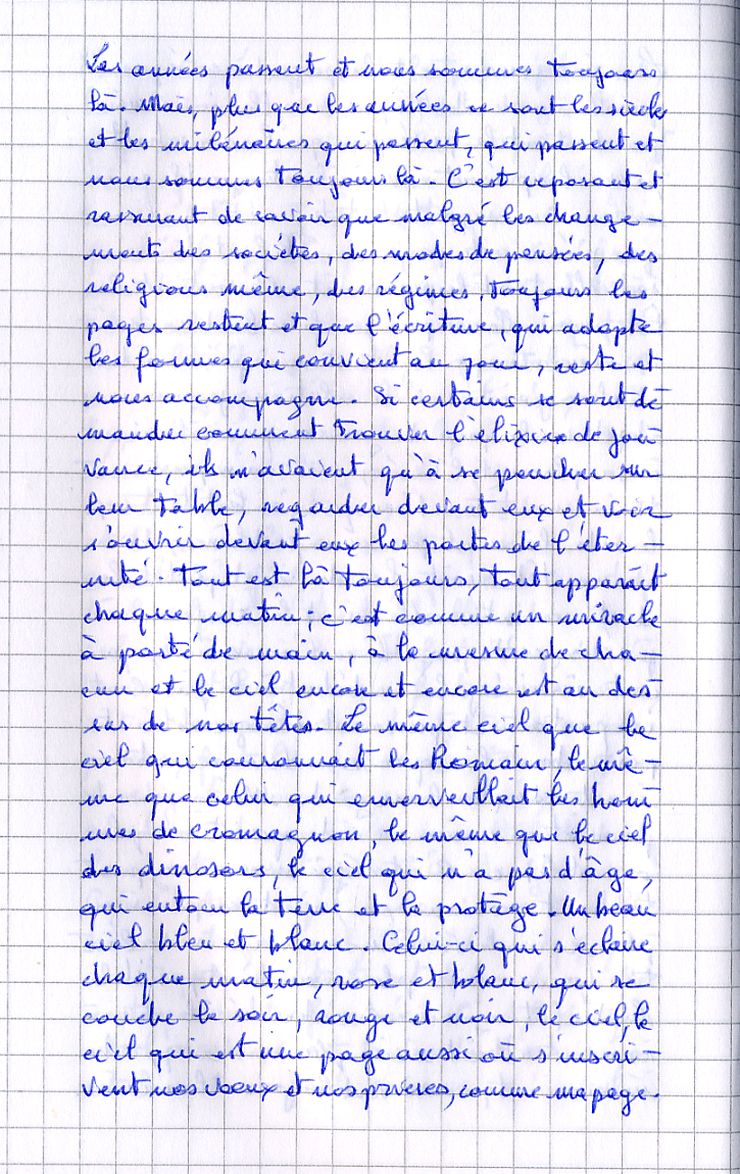 Les années passent et nous sommes toujours
là. Mais, plus que les années ce sont les siècles
et les milénaires qui passent, qui passent et
nous sommes toujours là. C'est reposant et
rassurant de savoir que malgré les change-
ments des sociétés, des modes de pensées, des
religions même, des régimes, toujours les
pages restent et que l'écriture, qui adopte
les formes qui convient au jour, reste et
nous accompagne. Si certains se sont de
mandés comment trouver l'élixir de jou
vance, ils n'avaient qu'à se pencher sur
leur table, regarder devant eux et voir
s'ouvrir devant eux les portes de l'éter-
nité. Tout est là toujours, tout apparaît
chaque matin ; c'est comme un miracle
à porté de main, à la mesure de cha-
cun et le ciel encore et encore est au des
sus de nos têtes. Le même ciel que le
ciel qui couronnait les Romains, le mê-
me que celui qui émerveillait les hom
mes de cromagnon, le même que le ciel
des dinosors, le ciel qui n'a pas d'âge,
qui entoure la terre et la protège. Un beau
ciel bleu et blanc. Celui-ci qui s'éclaire
chaque matin, rose et blanc, qui se
couche le soir, rouge et noir, le ciel, le
ciel qui est une page aussi où s'inscri-
vent nos voeux et nos prières, comme ma page.